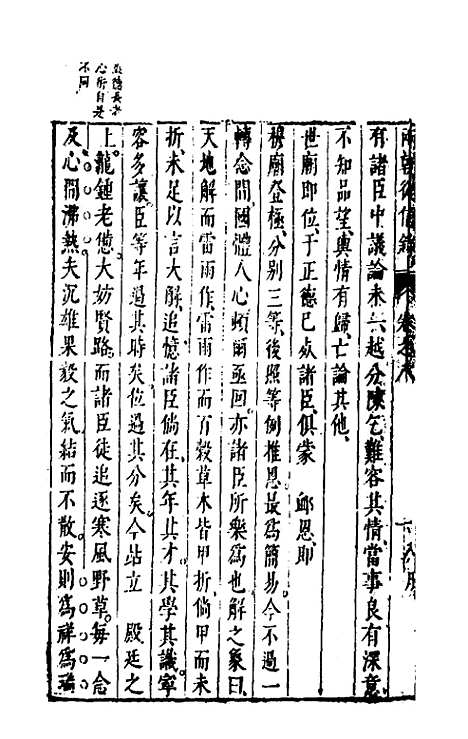 兩朝從信錄
有諸臣中議論未六越分陳乞難容其情當事良有深意
不知品望輿情有歸亡論其他
世廟即位于正德已處諸臣俱蒙 卹恩即
穆廟登極分别三等後照等例推恩最爲簡易今不過一
轉念間國體人心頓爾亟回亦諸臣所樂爲也解之象曰
天地解而雷雨作雷雨作而百穀草木皆甲折倘甲而未
折未足以言大解追憶諸臣倘在其年其才其學其識寧
容多讓臣等年過其時矣位過其分矣今站立 殿廷之
上龍鍾老憊大妨賢路而諸臣徒追逐寒風野草每一念
及心間沸熱夫沉雄果毅之氣結而不散安則爲祥爲瑞
長者
心所自是
不同